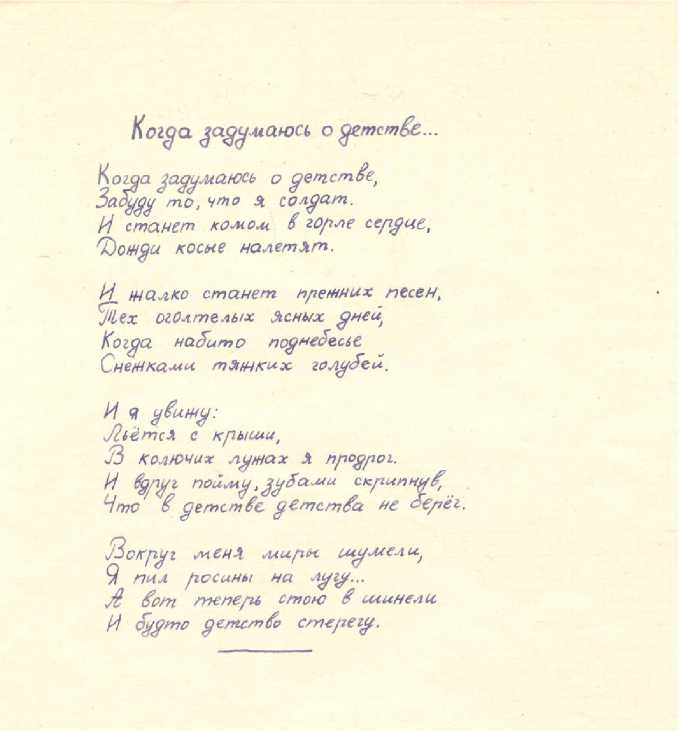 Когда задумаюсь о детстве...
Когда задумаюсь о детстве,
Забуду то, что я солдат.
И станет комом в горле сердце,
Дожди косые налетят.
И жалко станет прежних песен,
Тех оголтелых ясных дней,
Когда набито поднебесье
Снежками тяжких голубей.
И я увижу:
Льётся с крыши,
В колючих лужах я продрог.
И вдруг пойму, зубами скрипнув,
Что в детстве детства не берёг.
Вокруг меня миры шумели,
Я пил росины на лугу...
А вот теперь стою в шинели
И будто детство стерегу.